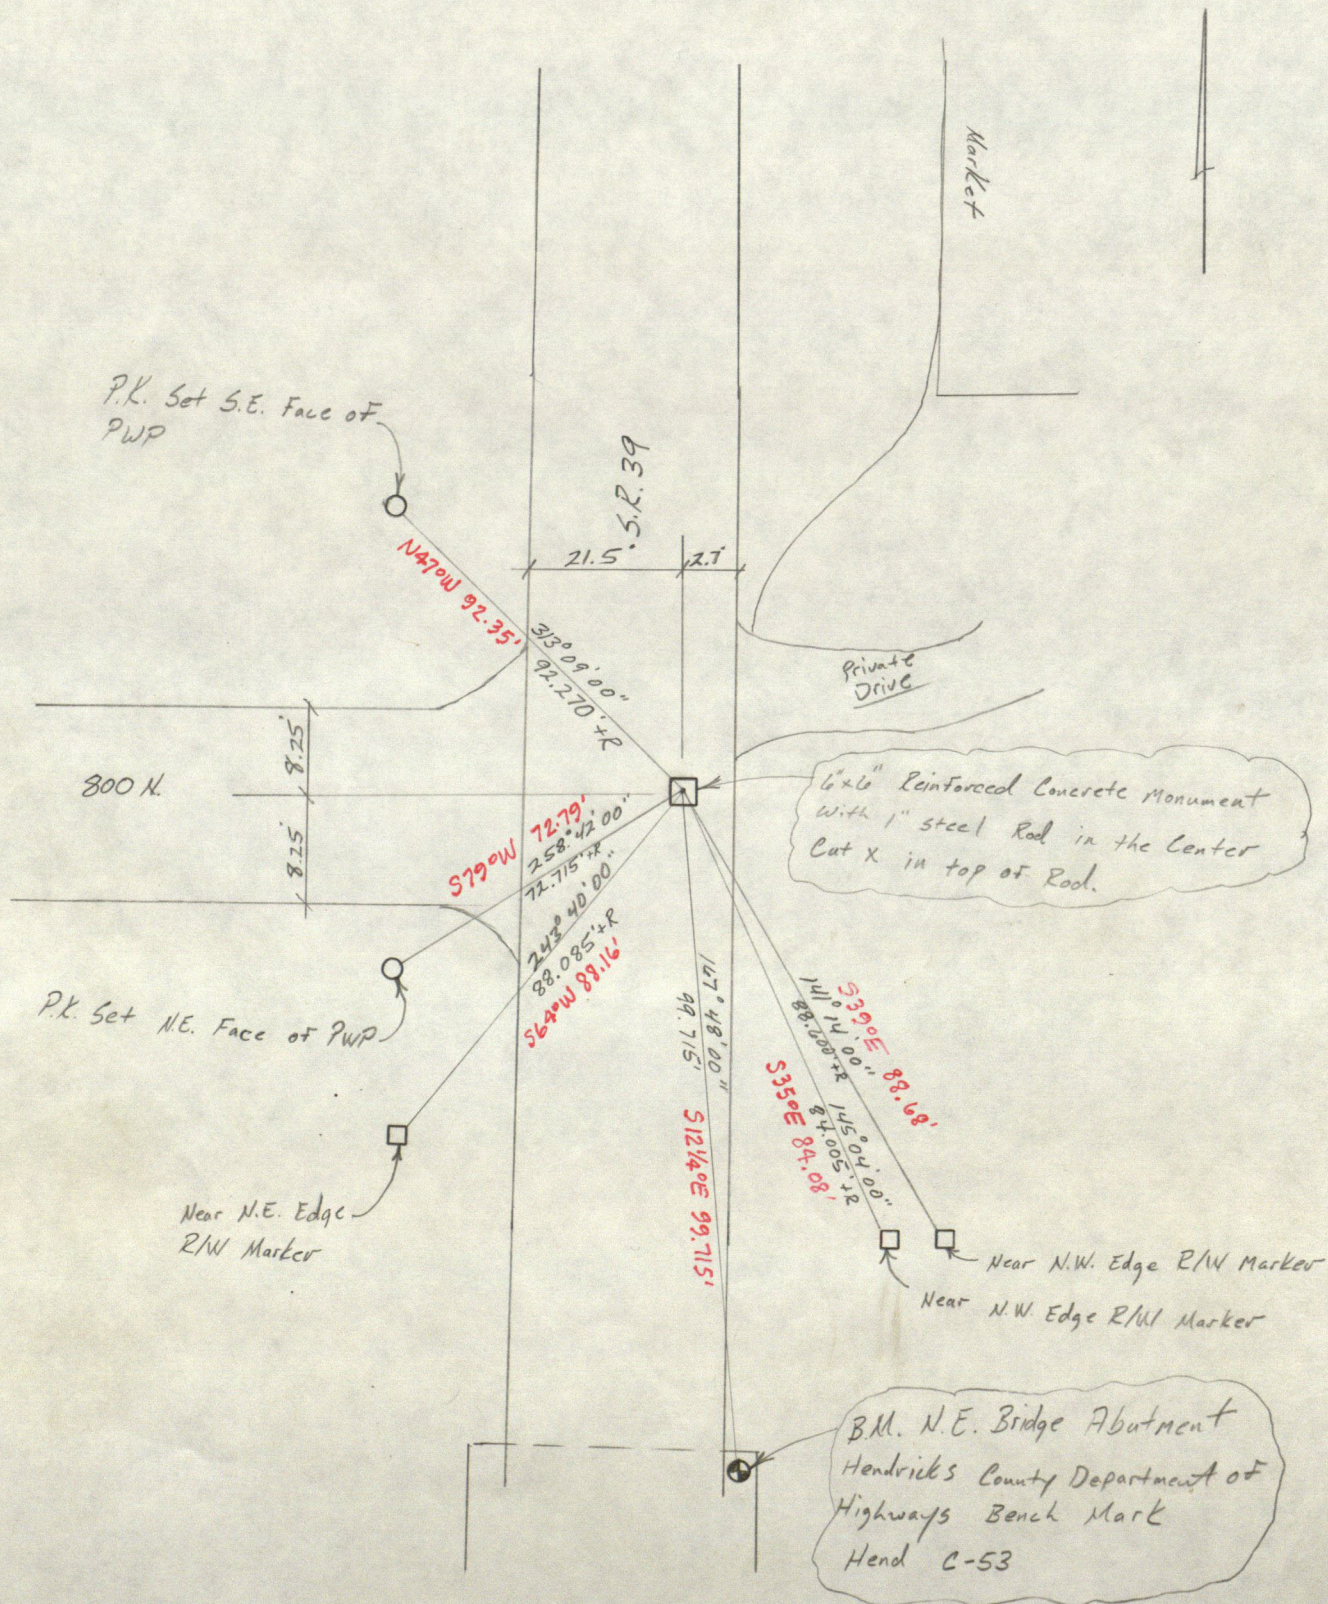 Market
P.K. Set S.E. Face of
PWP
S.R. 39
21.5'
2.7'
N47°W 92.35'
313° 09' 00"
92.270' +R
Private
Drive
8.25'
800 N.
8.25'
6"x6" Reinforced Concrete Monument
With 1" steel Rod in the Center
Cut X in top of Rod.
S79°W 72.79'
258° 42' 00"
72.715' +R
243° 40' 00"
88.085' +R
S64°W 88.16'
P.K. Set N.E. Face of PWP
167° 48' 00"
99.715'
S12¼°E 99.715'
S39°E 88.68'
141° 14' 00"
88.600' +R
145° 04' 00"
84.005' +R
S35°E 84.08'
Near N.E. Edge
R/W Marker
Near N.W. Edge R/W Marker
Near N.W. Edge R/W Marker
B.M. N.E. Bridge Abutment
Hendricks County Department of
Highways Bench Mark
Hend C-53